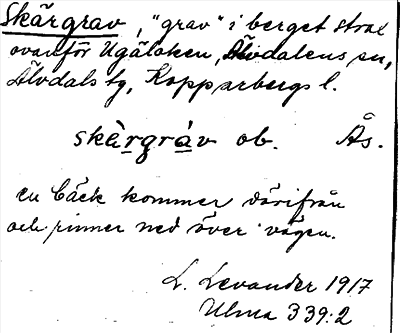 Skärgrav, "grav" i berget strax
ovanför Ugåloken, Älvdalens sn,
Älvdals tg, Kopparbergs l.
skèrgràv ob. Ås.
en bäck kommer därifrån
och rinner ned över vägen.
L. Levander 1917
Ulma 339:2